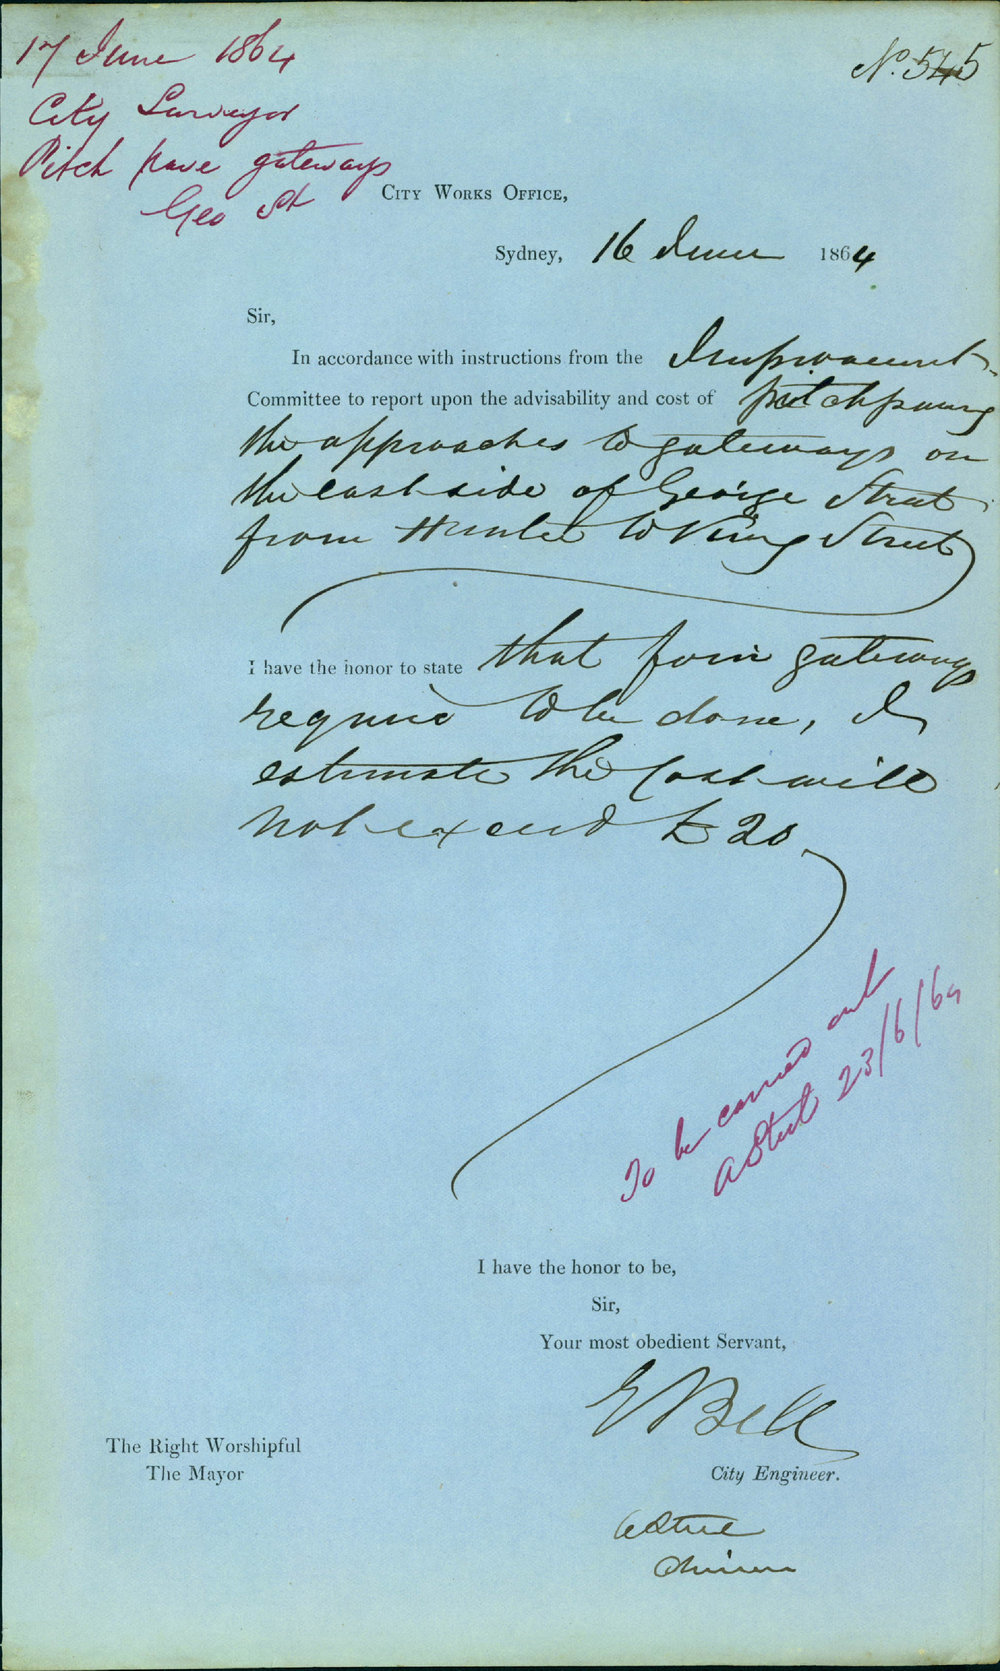 17 June 1864
City Surveyor
Pitch pave gateways
Geo St
No. 545
City Works Office,
Sydney, 16 June 1864
Sir,
In accordance with instructions from the Improvement
Committee to report upon the advisability and cost of pitchpaving
the approaches to gateways on
the east side of George Street
from Hunter to King Street
I have the honor to state that four gateways
require to be done, I
estimate the cost will
not exceed £20
To be carried out
23/6/64
I have the honor to be,
Sir,
Your most obedient Servant,
E Bell
The Right Worshipful
The Mayor
City Engineer.